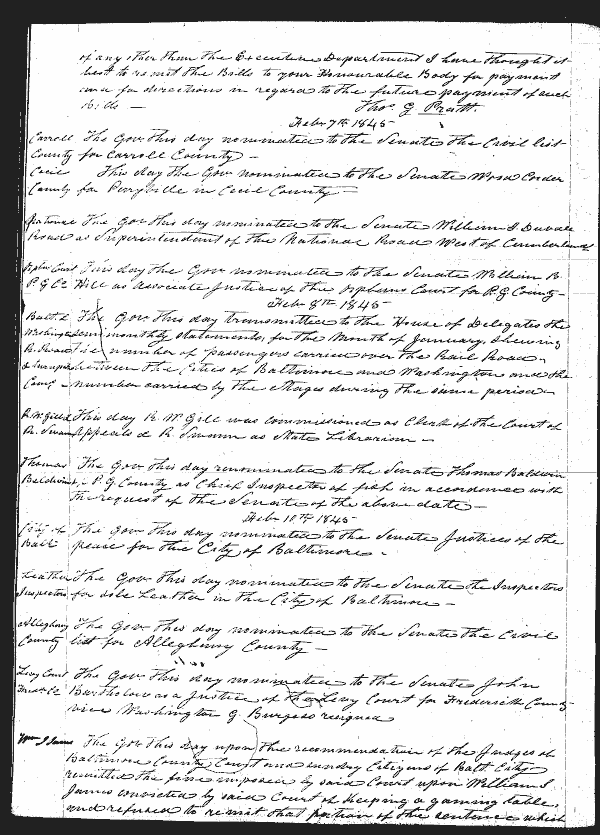 of any other than the Executive Department I have thought it
best to remit the Bills to your Honourable Body for payment
and for directions in regard to the future payment of such
Bills —
Thos. G Pratt
Feby 7th 1845
Carroll The Gov this day nominated to the Senate the Civil list
County for Carroll County —
Cecil This day the Gov nominated to the Senate
County for Perryville in Cecil County —
National The Gov this day nominated to the Senate William
Road as Superintendent of the National Road West of Cumberland
Orphs Court This day the Gov nominated to the Senate William B.
P G Co Hill as associate Justice of the Orphans Court for P. G County —
Feby 8th 1845
Balt & The Gov this day transmitted to the House of Delegates the
Washington monthly statements, for the Month of January, shewing
R. Road the number of passengers carried over the Rail Road
between the Cities of Baltimore and Washington and the
number carried by the Stages during the same period —
R. W. Gill & This day R W Gill was commissioned as Clerk of the Court of
R. Swann Appeals & R. Swann as State Librarian —
Thomas The Gov this day renominated to the Senate Thomas Baldwin
Baldwin P. G County as Chief Inspector of fish in accordance with
the request of the Senate of the above date —
Feby 10th 1845
City of The Gov this day nominated to the Senate Justices of the
Balt peace for the City of Baltimore.
Leather The Gov this day nominated to the Senate the Inspectors
Inspectors for sole Leather in the City of Baltimore —
Alleghany The Gov this day nominated to the Senate the Civil
County list for Alleghany County —
Levy Court The Gov this day nominated to the Senate John
Fredk Co Bartholow as a Justice of the Levy Court for Frederick County
vice Washington G. Burgess resigned
Wm I James The Gov this day upon the recommendation of the Judges of
Baltimore County Court and sundry Citizens of Balt City
remitted the fine imposed by said Court upon William I.
James convicted by said Court of Keeping a gaming table,
and refused to remit that portion of the sentence which